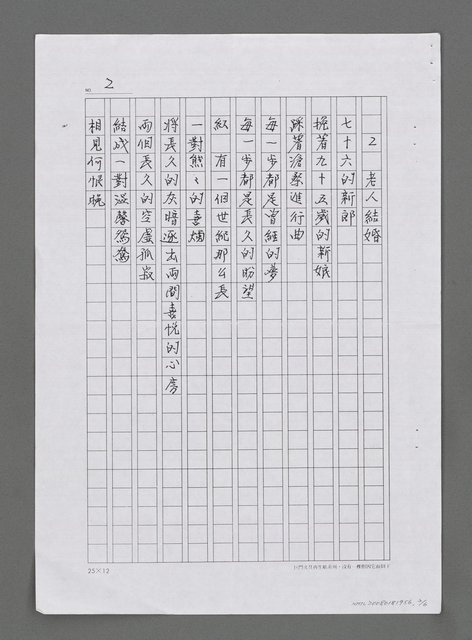 NO. 2
2 老人結婚
七十六的新郎
挽著九十五歲的新娘
踩著滄桑進行曲
每一步都是曾經的夢
每一步都是長久的盼望
紅 有一個世紀那么長
一對熊々的喜燭
將長久的灰暗逐出兩間喜悅的心房
兩個長久的空虛孤寂
結成一對溫馨鴛鴦
相見何恨晚
25×12